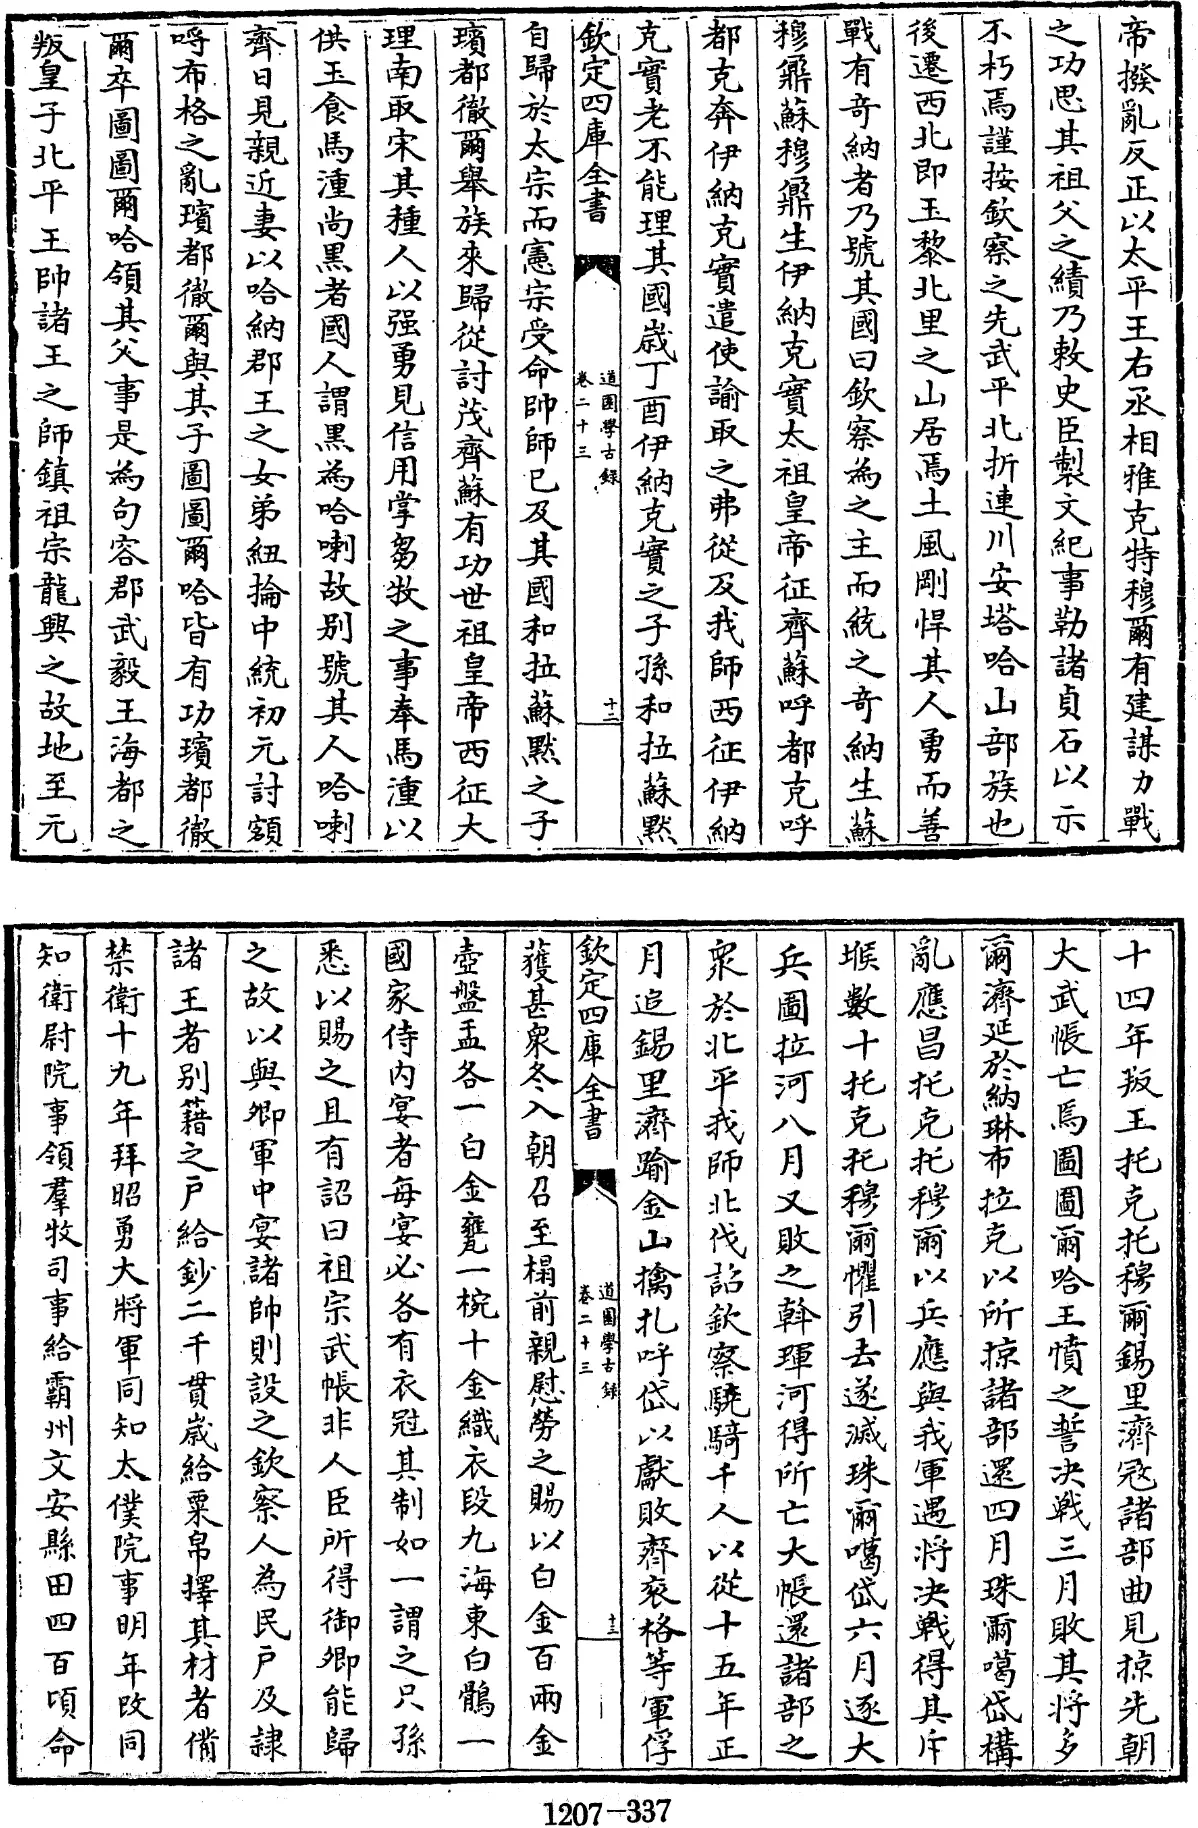 帝撥亂反正以太平王右丞相雅克特穆爾有建謀力戰
之功思其祖父之績乃敕史臣製文紀事勒諸貞石以示
不朽焉謹按欽察之先武平北折連川安塔哈山部族也
後遷西北即玉黎北里之山居焉土風剛悍其人勇而善
戰有奇納者乃號其國曰欽察為之主而統之奇納生蘇
穆鼐蘇穆鼐生伊納克實太祖皇帝征齊蘇呼都克呼
都克奔伊納克實遣使諭取之弗從及我師西征伊納
克實老不能理其國歲丁酉伊納克實之子孫和拉蘇默
欽定四庫全書
道園學古錄
卷二十三
十二
自歸於太宗而憲宗受命帥師已及其國和拉蘇默之子
瓊都徹爾舉族來歸從討茂齊蘇有功世祖皇帝西征大
理南取宋其種人以强勇見信用掌芻牧之事奉馬湩以
供玉食馬湩尚黑者國人謂黑為哈喇故别號其人哈喇
齊日見親近妻以哈納郡王之女弟紐掄中統初元討額
哷布格之亂瓊都徹爾與其子圖圖爾哈皆有功瓊都徹
爾卒圖圖爾哈領其父事是為句容郡武毅王海都之
叛皇子北平王帥諸王之師鎮祖宗龍興之故地至元
十四年叛王托克托穆爾錫里濟寇諸部曲見掠先朝
大武帳亡焉圖圖爾哈王憤之誓决戰三月敗其將多
爾濟延於納琳布拉克以所掠諸部還四月珠爾噶岱構
亂應昌托克托穆爾以兵應與我軍遇將决戰得其斥
堠數十托克托穆爾懼引去遂滅珠爾噶岱六月逐大
兵圖拉河八月又敗之斡琿河得所亡大帳還諸部之
衆於北平我師北伐詔欽察驍騎千人以從十五年正
月追錫里濟踰金山擒扎呼岱以獻敗齊衮格等軍俘
欽定四庫全書
道園學古錄
卷二十三
十三
獲甚衆冬入朝召至榻前親慰勞之賜以白金百兩金
壺盤盂各一白金甕一椀十金織衣段九海東白鶻一
國家侍内宴者每宴必各有衣冠其制如一謂之只孫
悉以賜之且有詔曰祖宗武帳非人臣所得御卿能歸
之故以與卿軍中宴諸帥則設之欽察人為民戶及隸
諸王者别籍之戶給鈔二千貫歲給粟帛擇其材者備
禁衛十九年拜昭勇大將軍同知太僕院事明年改同
知衛尉院事領羣牧司事給霸州文安縣田四百頃命
1207-337